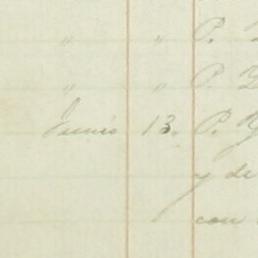 " " P.
" " P.
Junio 13. P.
y de
con